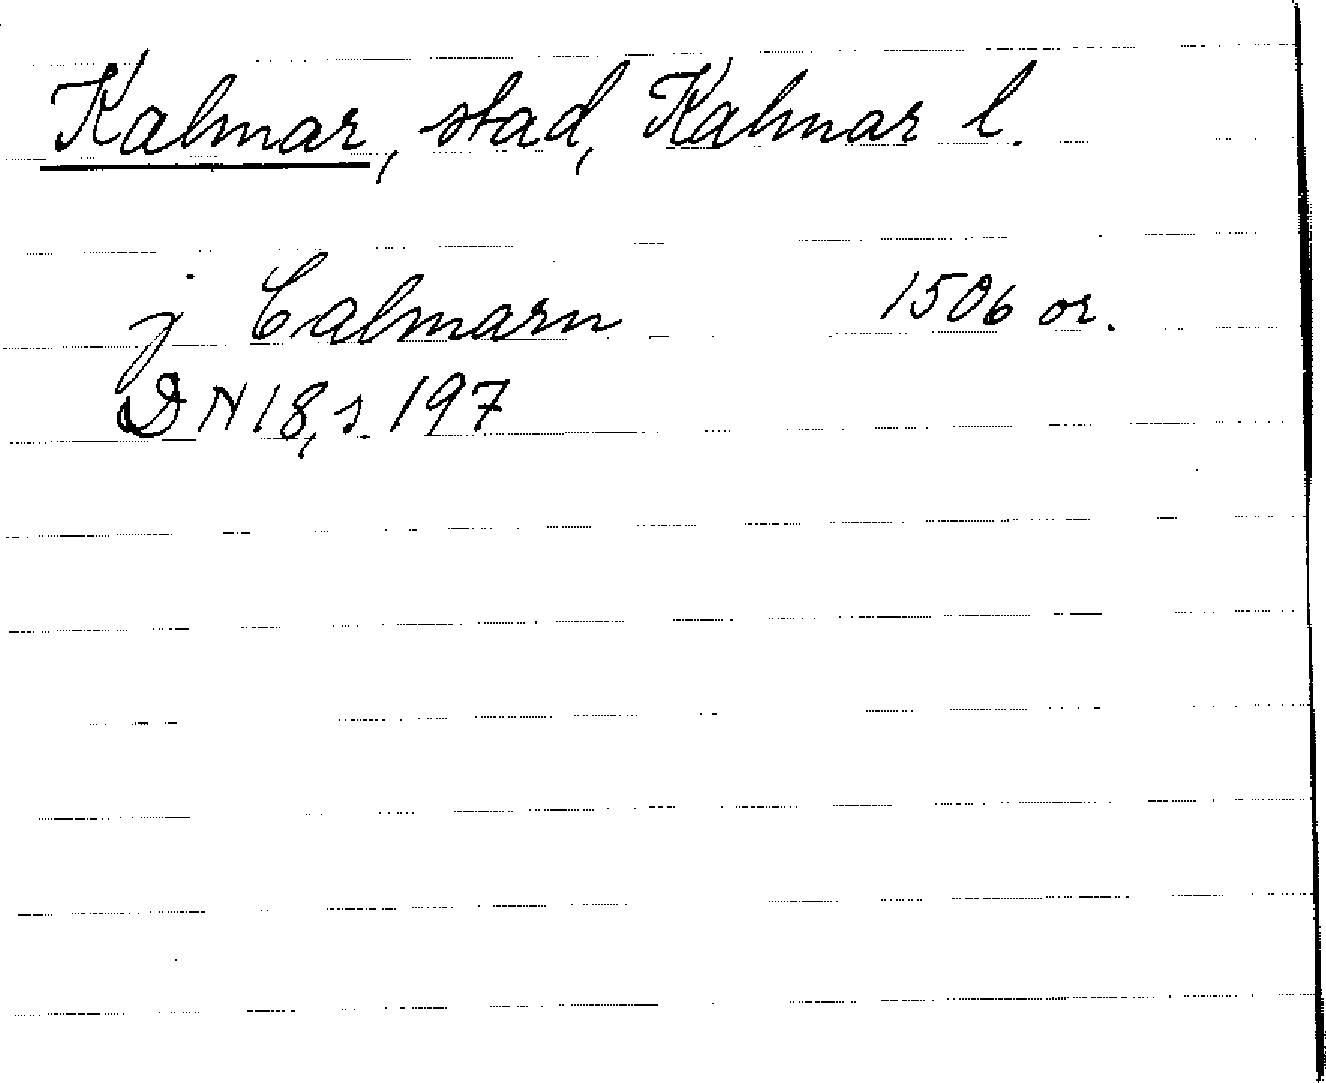 Kalmar, stad, Kalmar l.
j Calmarn 1506 or.
DN 18, s. 197